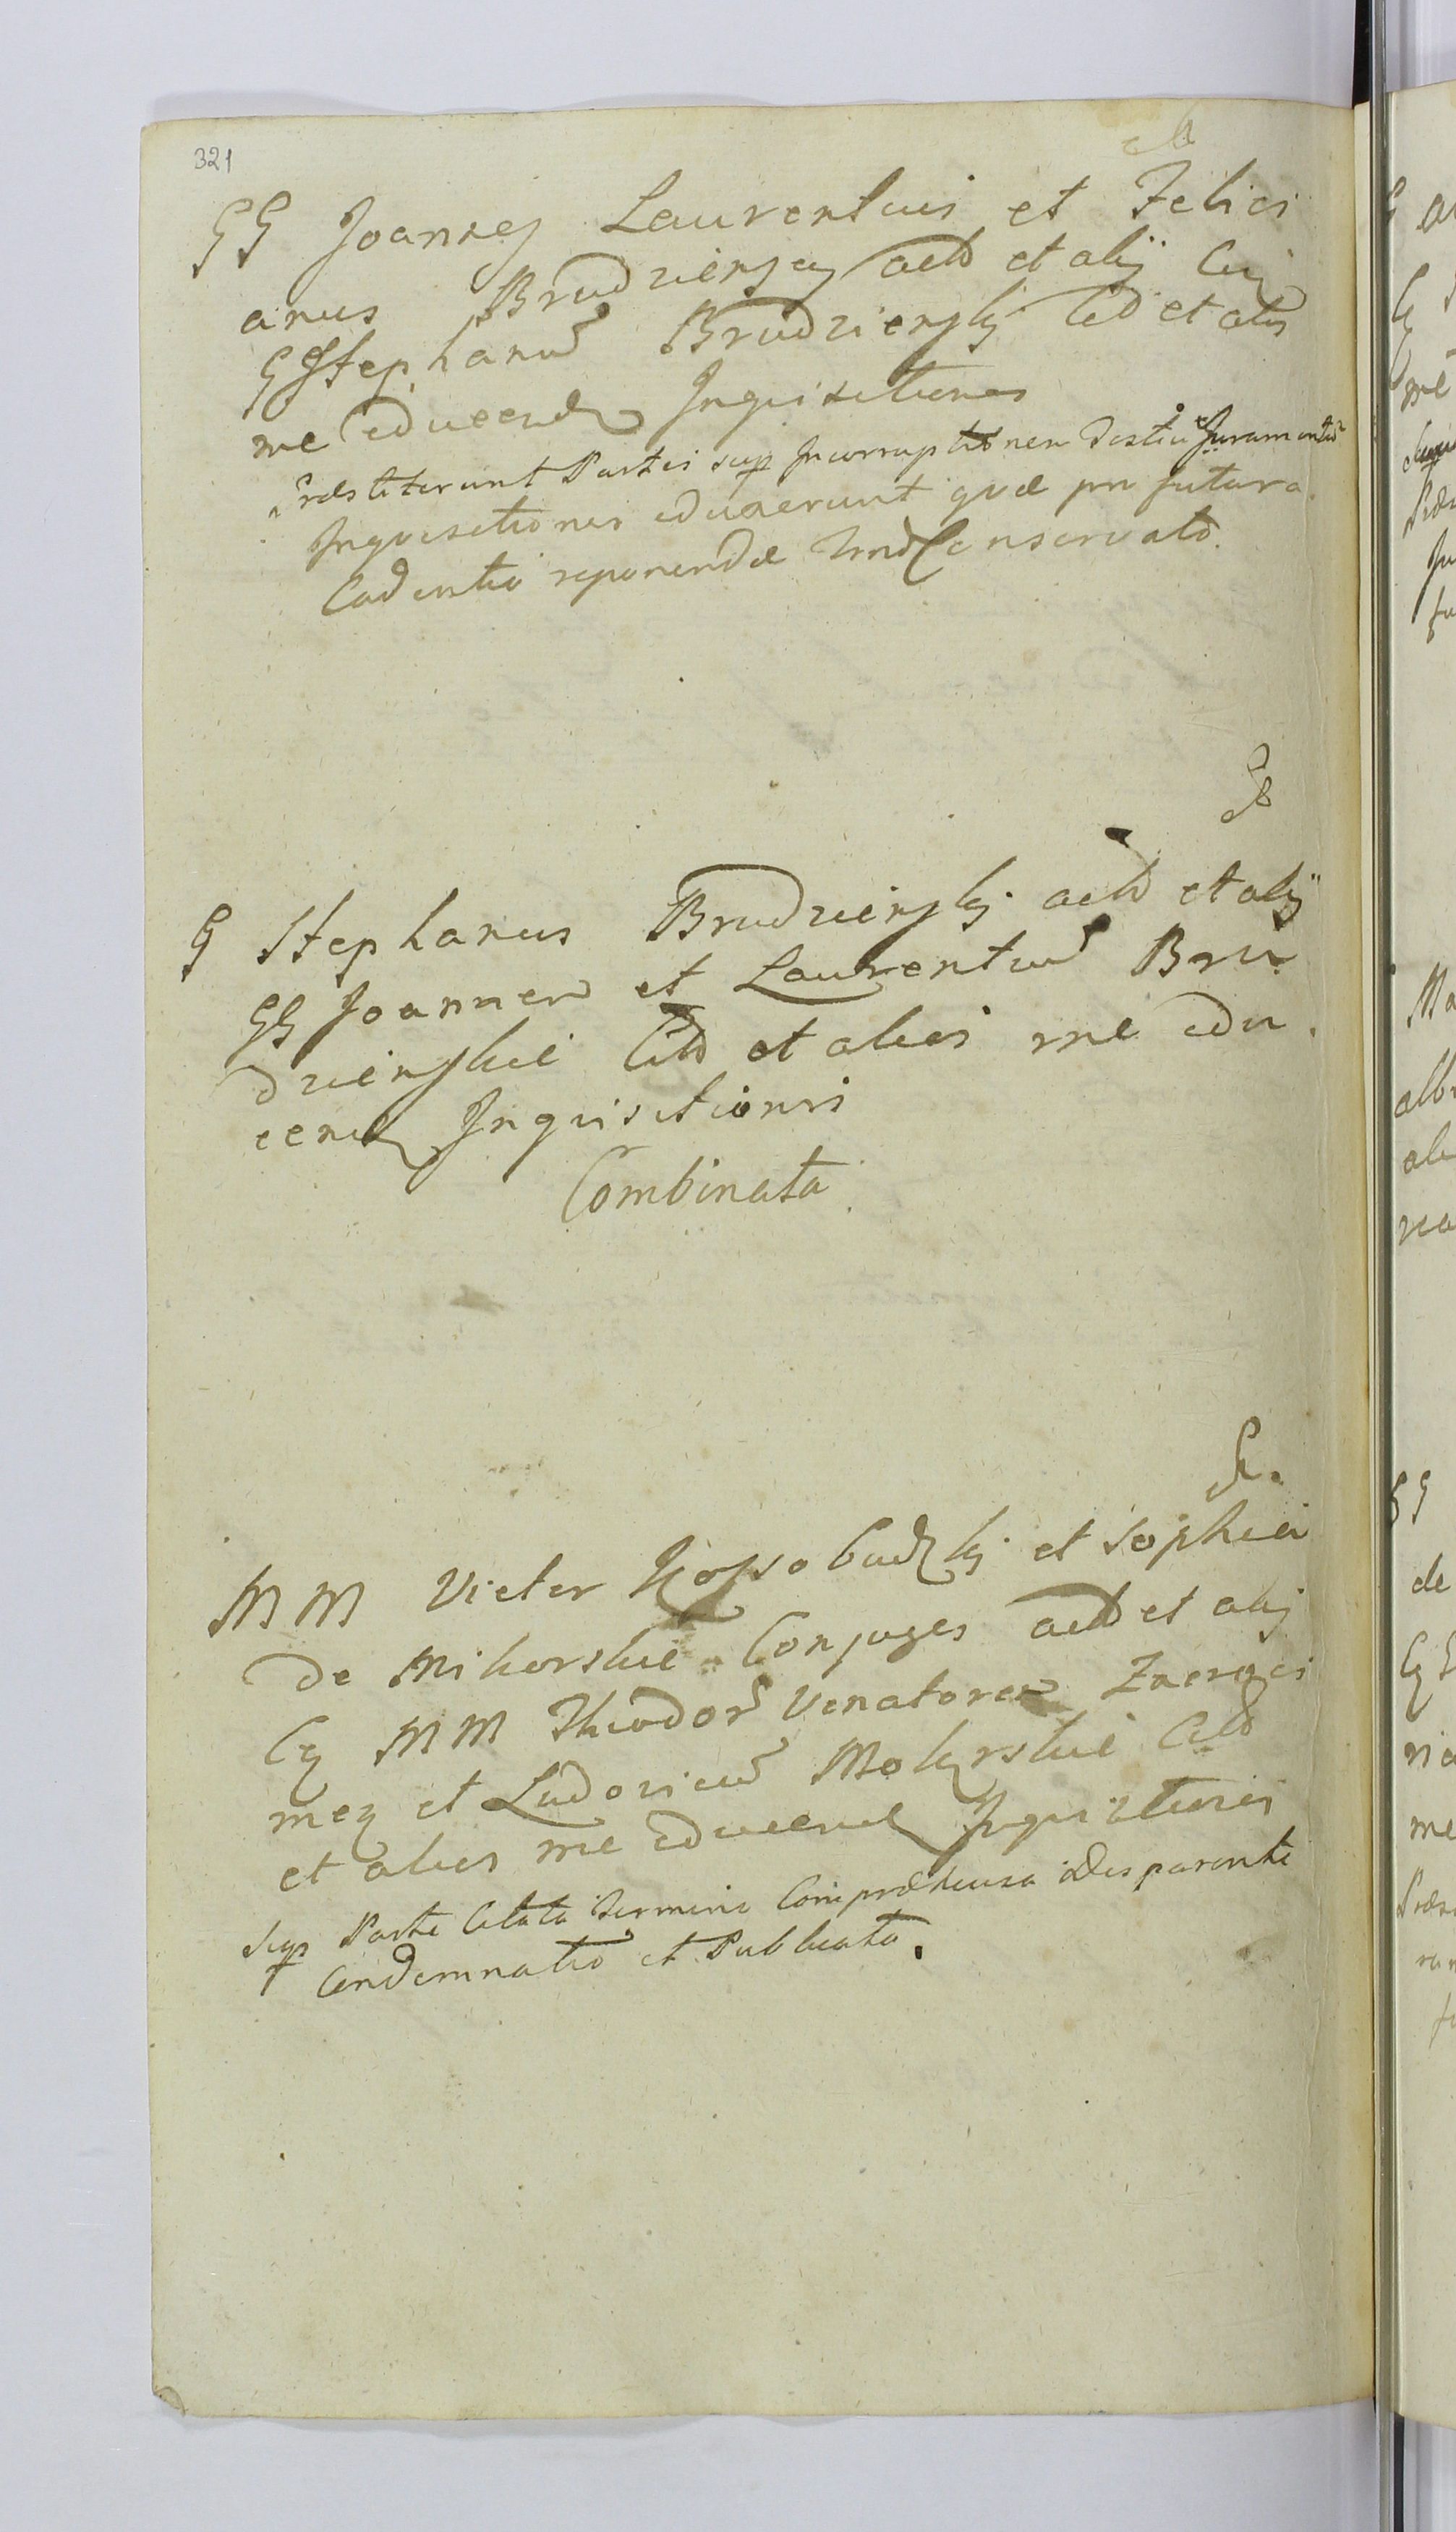 321
GG Joannes Laurentius et Felici
anus Brudzienscy act et alij Cu
G Stephanū Brudziensky Cit et alis
me educend Inquisitiones
Præstiterunt Partes sup Incorruptionem Testiū Juramentū
Inquisitiones eduxerunt quæ pro futura
Cadentia reponendæ Conservato.
G Stephanus Brudziensky act et alij
GG Joannem et Laurentiū Bru
dzienskie Cit et alies me edu
cend Inquisitionis
Combinata
MM Victor Kossobudzky et Sophia
de Mikorskie Conjuges act et alij
Cu MM Theodorū Venatorem Zacroci
men et Ludovicū Mokrskie Cit
et alies me educend Inquisitionis
Sup Parte Citata Termini Compræhensa adesparente
Condemnatio et Publicata.